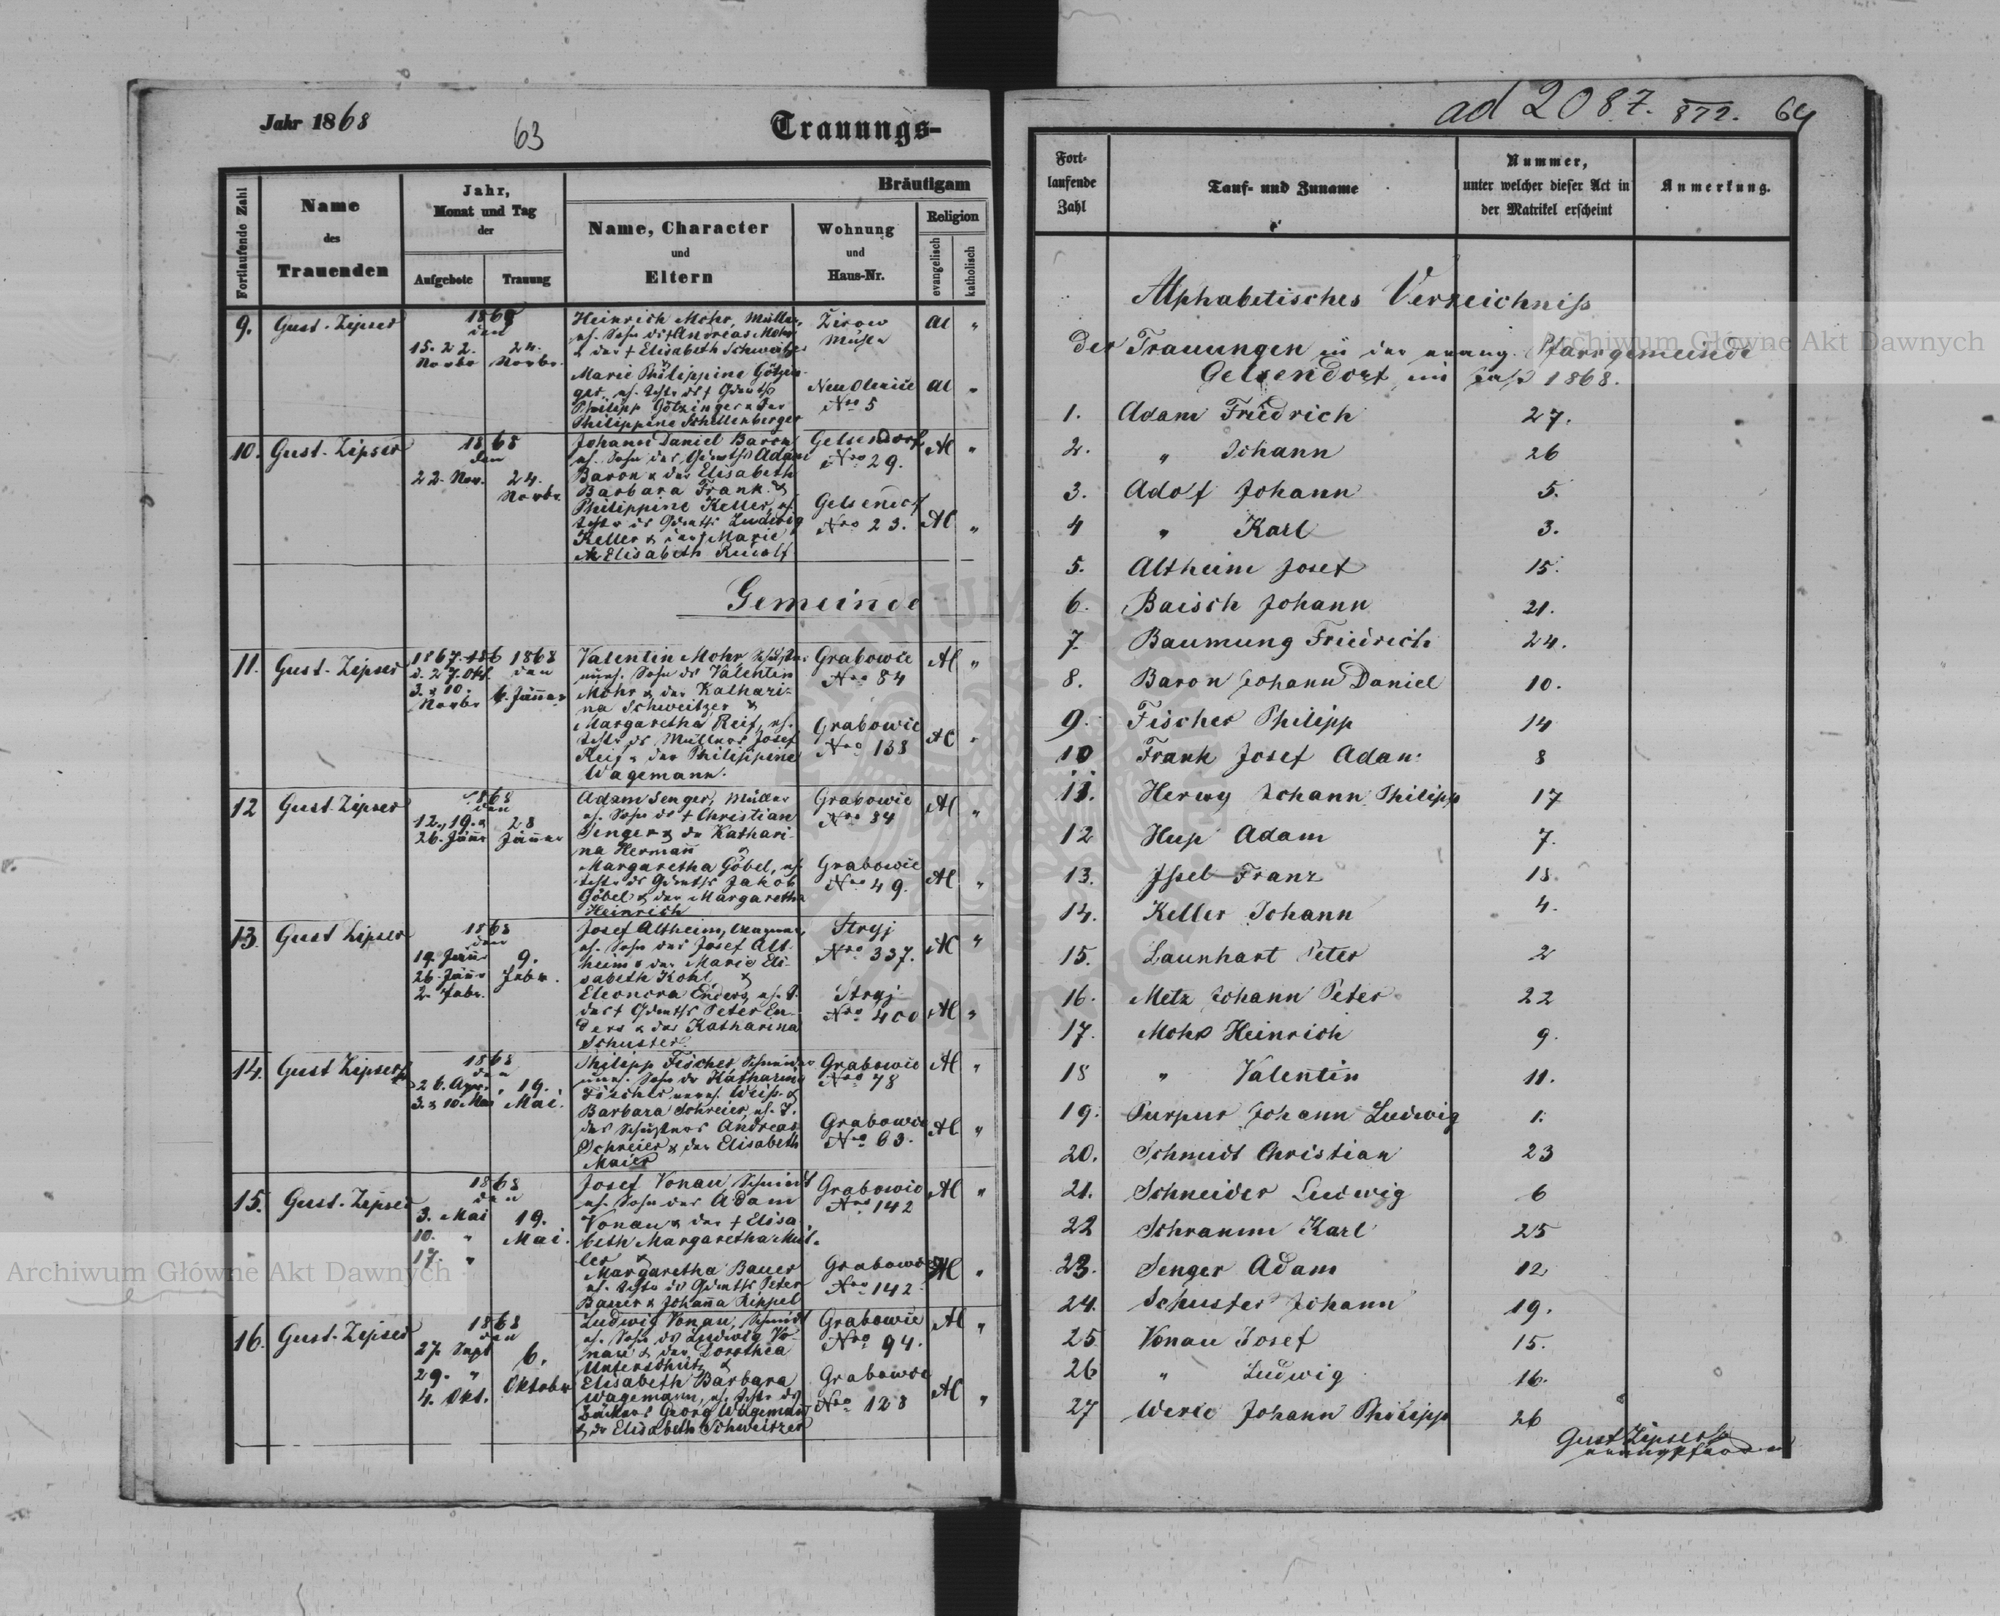 Jahr 1868
63
Trauungs-
Fortlaufende Zahl
Name
des
Trauenden
Jahr,
Monat und Tag
der
Aufgebote
Trauung
Bräutigam
Name, Character
und
Eltern
Wohnung
und
Haus-Nr.
Religion
evangelisch
katholisch
9. Gust. Zipser
1868
den
15. 22. Novbr
24. Novbr.
Heinrich Mohr, Müller,
Andreas Mohr
Elisabeth Schweitzer
Marie Philippine Götzin-
ger
Philipp Götzinger u der
Philippine Schellenberger
Żirow
Mühle
Neu Olexice
Nro 5
Al "
Al "
10. Gust. Zipser
1868
den
22. Nov.
24. Novbr.
Johann Daniel Baron
Adam
Baron & der Elisabeth
Barbara Frank &
Philippine Keller,
Ludwig
Keller & der Marie
Elisabeth Rudolf
Gelsendorf
Nro 29.
Gelsendf
Nro 23.
Al "
Al "
Gemeinde
11. Gust. Zipser
1868
den
d. 27. Okt.
3. & 10. Novbr
6. Jänner
Valentin Mohr
Sohn des Valentin
Mohr & der Kathari-
na Schweitzer &
Margaretha Reif,
Müllers Josef
Reif & der Philippine
Wagemann.
Grabowie
Nro 84
Grabowie
Nro 138
Al "
Al "
12 Gust Zipser
1868
den
12., 19. &
26. Jänr
28 Jänner
Adam Senger, Müller
Sohn des + Christian
Senger & der Kathari-
na Hermañ &
Margaretha Göbel,
Jakob
Göbel & der Margaretha
Heinrich
Grabowie
Nro 84
Grabowie
Nro 49.
Al "
Al "
13. Gust Zipser
1868
den
19 Jänr
26. Jänr
2. Febr.
9. Febr.
Josef Altheim, Wagner,
Sohn des Josef Alt-
heim & der Marie Eli-
sabeth Kohl, &
Eleonora Enders,
Peter En-
ders & der Katharina
Schuster.
Stryj
Nro 337.
Stryj
Nro 400
Al "
Al "
14. Gust Zipser
1868
den
26. April
3. & 10 Mai
19. Mai.
Philipp Fischer, Schneider
Sohn der Katharina
Fischer
Barbara Schreier,
des Schusters Andreas
Schreier & der Elisabeth
Maier
Grabowie
Nro 78
Grabowie
Nro 63.
Al "
Al "
15. Gust. Zipser
1868
den
3. Mai
10. "
17. "
19. Mai.
Josef Vonau, Schmidt
Sohn des Adam
Vonau & der + Elisa
beth Margaretha Mül-
ler &
Margaretha Bauer
Peter
Bauer & Johañna Rippel
Grabowie
Nro 142
Grabowie
Nro 142
Al "
Al "
16. Gust. Zipser
1868
den
27. Sept
29. "
4. Okt.
6. Oktober
Ludwig Vonau, Schmidt
Sohn des Ludwig Vo-
nau & der Dorothea
Unterschütz &
Elisabeth Barbara
Wagemann,
Georg Wagemann
& der Elisabeth Schweitzer
Grabowie
Nro 94.
Grabowie
Nro 128
Al "
Al "
ad 2087. 872. 64
Fort-
laufende
Zahl
Tauf- und Zuname
Nummer,
unter welcher dieser Act in
der Matrikel erscheint
Anmerkung.
Alphabetisches Verzeichniß
der Trauungen in der evang. Pfarrgemeinde
Gelsendorf im Jahr 1868.
1. Adam Friedrich 27.
2. " Johann 26
3. Adolf Johann 5.
4 " Karl 3.
5. Altheim Josef 15.
6. Baisch Johann 21.
7. Baumung Friedrich 24.
8. Baron Johann Daniel 10.
9. Fischer Philipp 14
10 Frank Josef Adam 8
11. Herwy Johann Philipp 17
12 Hup Adam 7.
13. Issel Franz 18
14. Keller Johann 4.
15. Launhart Peter 2
16. Metz Johann Peter 22
17. Mohr Heinrich 9.
18 " Valentin 11.
19. Purpur Johann Ludwig 1.
20. Schmidt Christian 23
21. Schneider Ludwig 6
22 Schramm Karl 25
23. Senger Adam 12
24. Schuster Johann 19.
25 Vonau Josef 15.
26 " Ludwig 16.
27 Werle Johann Philipp 26
Gust Zipser
Archiwum Główne Akt Dawnych
Archiwum Główne Akt Dawnych